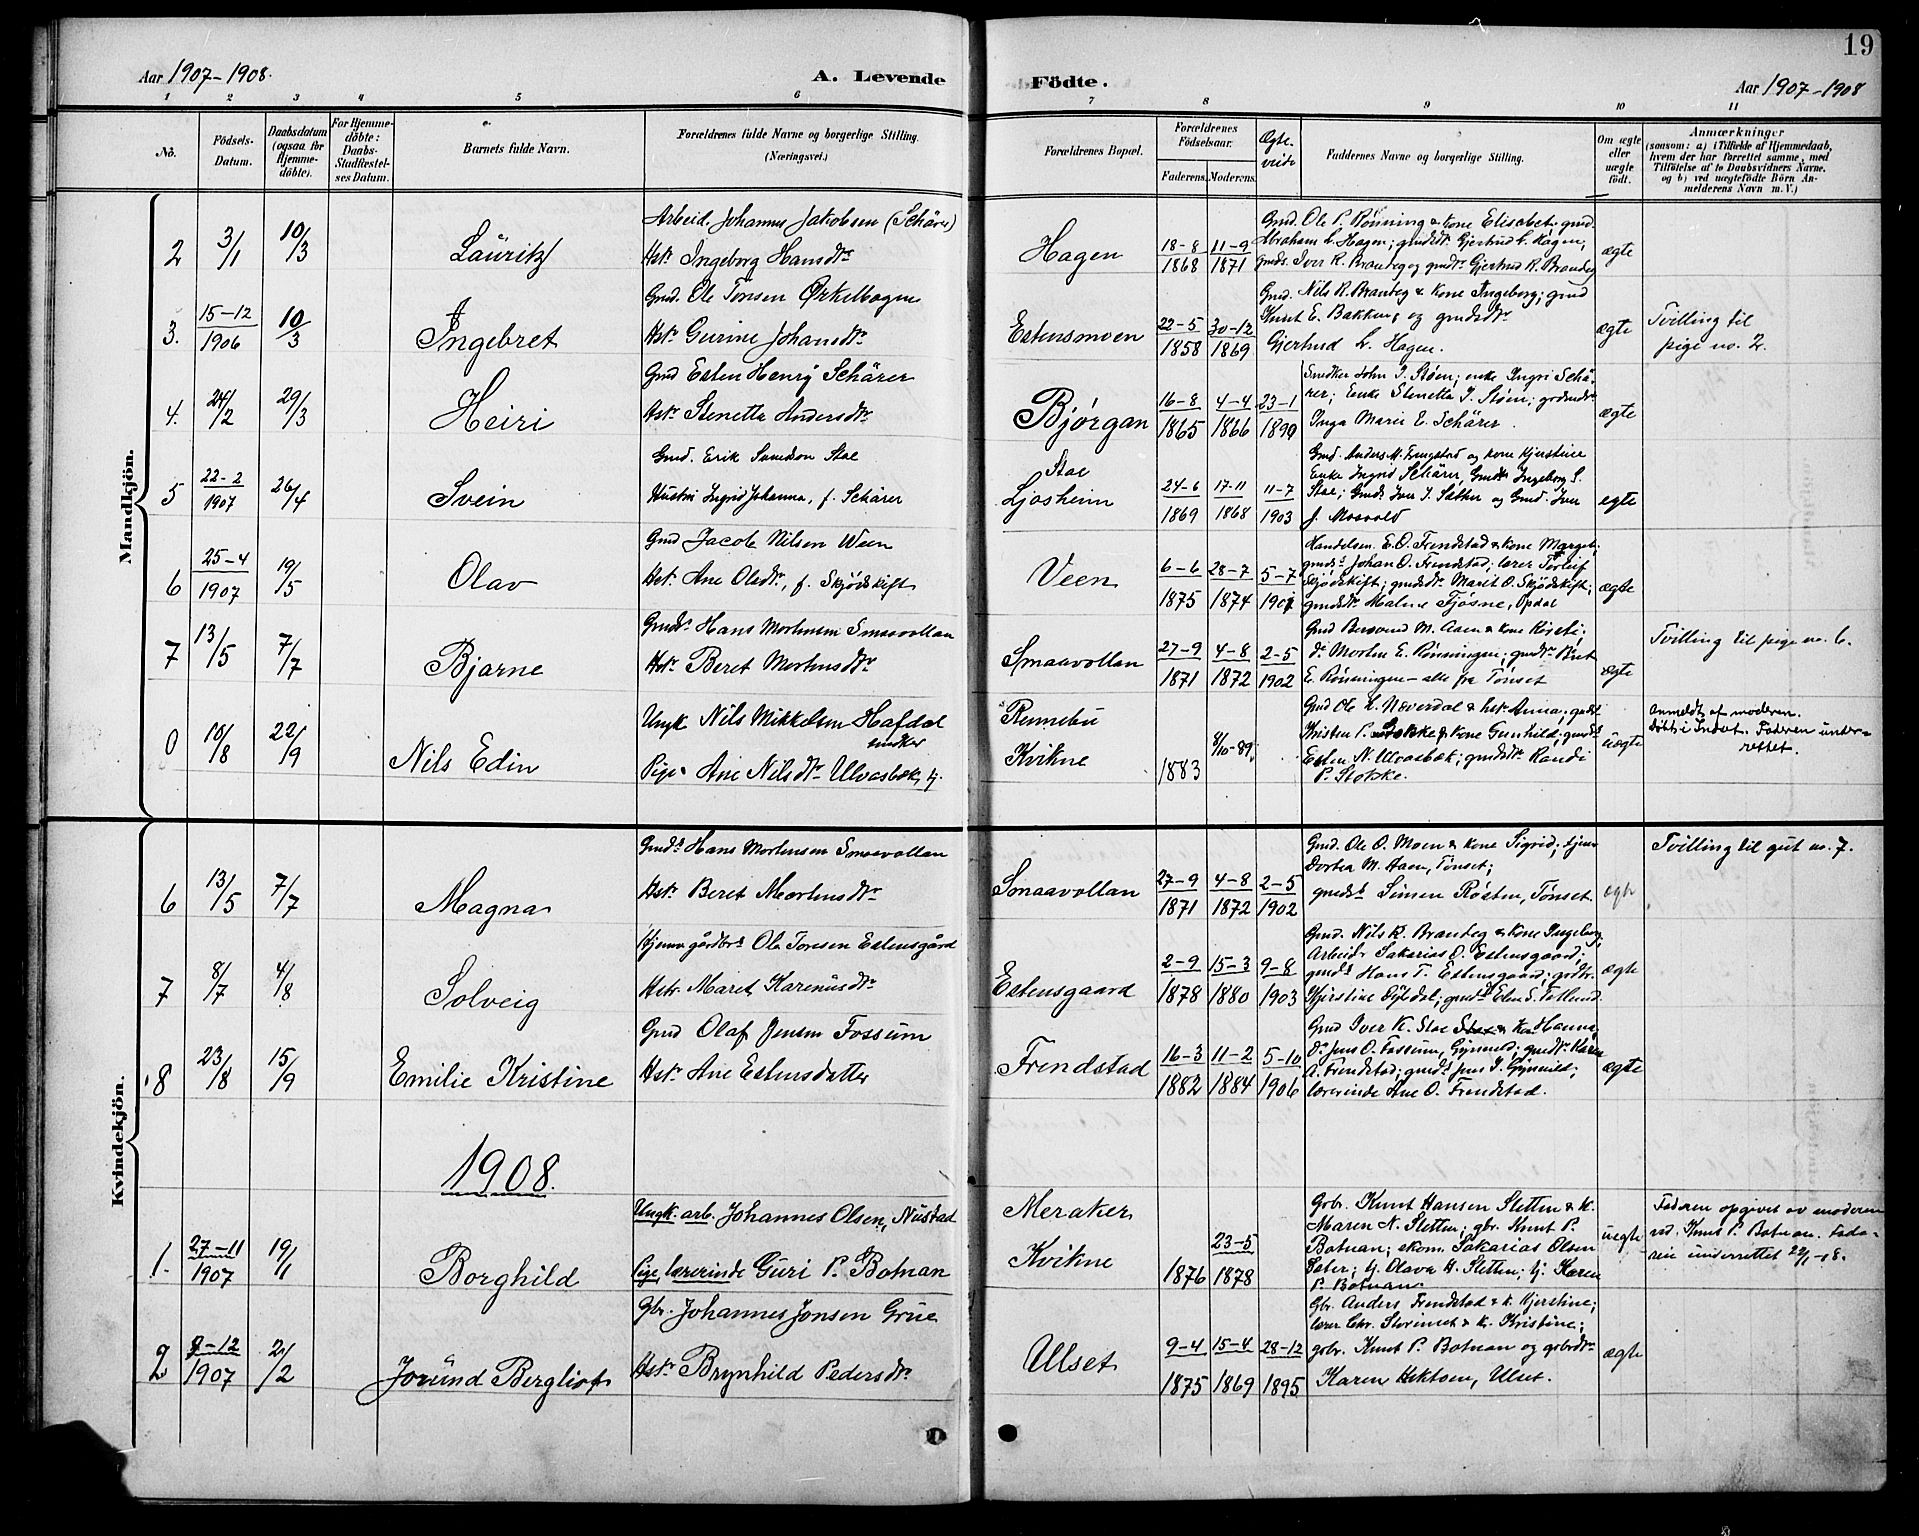 19
Aar 1907-1908.
A. Levende
Födte.
Aar 1907-1908
1 2 3 4 5 6 7 8 9 10 11
No.
Födsels-
Datum.
Daabsdatum
(ogsaa for
Hjemme-
döbte).
For Hjemme-
döbte:
Daabs-
Stadfæstel-
ses Datum.
Barnets fulde Navn.
Forældrenes fulde Navne og borgerlige Stilling.
(Næringsvei.)
Forældrenes Bopæl.
Forældrenes
Födselsaar.
Faderens. Moderens.
Ægte-
viede
Faddernes Navne og borgerlige Stilling.
Om ægte
eller
uægte
födt.
Anmærkninger
(saasom: a) i Tilfælde af Hjemmedaab,
hvem der har forrettet samme, med
Tilföielse af to Daabsvidners Navne.
og b) ved uægtefödte Börn An-
melderens Navn m. V.)
Mandkjön.
2 3/1 10/3 Lauritz
Arbeid. Johannes Jakobsen (Schärer)
Hst. Ingeborg Hansdtr
Hagen
18-8 1868 11-9 1871
Gmd. Ole P. Rønning & kone Elisabet; gmd.
Abraham L. Hagen; gmdsdt. Gjertrud L. Hagen;
gmds. Iver R. Brandeg og gmdtr. Gjertrud R. Brandeg
ægte
3. 15-12 1906 10/3 Ingebret
Gmd. Ole Tønsen Ørkelbogen
Hst. Gurine Johansdtr
Estensmoen
22-5 1858 30-12 1869
Gmd. Nils R. Brandeg & kone Ingeborg; gmd
Knut E. Bakken; og gmdsdtr
Gjertrud L. Hagen.
ægte
Tvilling til
pige no. 2.
4. 24/2 29/3 Heiri
Gmd Esten Henry Schärer
Hst. Stenetta Andersdtr
Bjørgan
16-8 1865 4-4 1866 23-1 1890
Snedker John J. Støen; enke Ingri Schä-
rer; Enke Stenetta J. Støen; gmdsdtr
Inga Marie E. Schärer.
ægte
5 22-2 1907 26/4 Svein
Gmd. Erik Svendsen Stae
Hustru Ingrid Johanna, f. Schärer
Stae
Ljosheim
24-6 1869 17-11 1868 11-7 1903
Gmd. Anders M. Frengstad og kone Kjerstine
Enke Ingrid Schärer, Gmdt. Ingeborg S.
Stae; Gmds Iver J. Sæther og Gmd. Iver
J. Mosvold
egte
6 25-4 1907 19/5 Olav
Gmd Jacob Nilsen Ween
Hst. Ane Olsdtr, f. Skjødskift
Veen
6-6 1875 28-7 1874 5-7 1901
Handelsm. E. O. Frendstad & kone Marget;
gmds. Johan O. Frendstad; lærer Torleif
Skjødskift; gmdsdtr Marit O. Skjødskift;
gmdsdtr Malene Fjøsne, Opdal
ægte
7 13/5 7/7 Bjarne
Gmds. Hans Mortensen Smaavollan
Hst. Beret Mortensdtr
Smaavollan
27-9 1871 4-8 1872 2-5 1902
Gmd Bersvend M. Aaen & kone Kirsti;
Do Morten E. Rønningen; gmdtr. Beret
E. Rønningen - alle fra Tønset
ægte
Tvilling til pige no. 6.
0 10/8 22/9 Nils Edin
Ungk Nils Mikkelsen Hafdal
snedker
Pige Ane Nilsdtr Ulvasbæk, tj.
Rennebu
Kvikne
1883 8/10-89.
Gmd Ole L. Næverdal & hst. Anna; gmdst.
Kristen P. Stølske & kone Gunhild; gmds
Esten N. Ulvasbæk; gmdsdtr Randi
P. Stølske.
uægte
Anmeldt af moderen.
Døbt i Indset. Faderen under-
rettet.
Kvindekjön.
6 13/5 7/7 Magna
Gmds. Hans Mortensen Smaavollan
Hst. Beret Mortensdtr
Smaavollan
27-9 1871 4-8 1872 2-5 1902
Gmd. Ole O. Moen & kone Sigrid; tjener
Dortea M. Aaen, Tønset;
gmds Simen Røsten, Tønset.
ægte
Tvilling til gut no. 7.
7 8/7 4/8 Solveig
Hjemv. gårdbr. Ole Toresen Estensgård
Hstr. Maret Karenusdtr
Estensgaard
2-9 1878 15-3 1880 9-8 1903
Gmd. Nils R. Brandeg & kone Ingeborg,
Arbeid. Sakarias O. Estensgaard;
gmds Hans T. Estensgaard; gmdtr.
Kjerstine Dybdal; gmdt. Elen S. Tollund.
ægte
8 23/8 15/9 Emilie Kristine
Gmd Olaf Jensen Fossum
Hst. Ane Estensdatter
Frendstad
16-3 1882 11-2 1884 5-10 1906
Gmd Iver K. Stae & kone Hanna;
Do Jens O. Fossum, Gjinvild; gmdtr Karen
A. Frendstad; gmds Jens J. Gjinvild;
lærerinde Ane O. Frendstad.
ægte
1908.
1. 27-11 1907 19/1 Borghild
Ungk. arb. Johannes Olsen, Nustad
Pige, lærerinde Guri P. Botnan
Meraker
Kvikne
1876 23-5 1878
Gbr. Knut Hansen Sletten & k.
Maren N. Sletten; gbr. Knut P.
Botnan; skom. Sakarias Olsen
Sæter; tj. Olava H. Sletten; tj. Karen
P. Botnan.
uægte
Faderen opgivet av moderen
ved Knut P. Botnan. Fade-
ren underrettet 22/1-08.
2 9-12 1907 2/2 Jorund Bergliot
Gbr. Johannes Jonsen Grue
Hst. Brynhild Pedersdtr
Ulset
9-4 1875 15-4 1869 28-12 1895
Gbr. Anders Frendstad & k. Kjerstine;
lærer Chr. Streimet & k. Kristine;
gbr. Knut P. Botnan og gbrdtr
Karen Hektoen, Ulset.
ægte